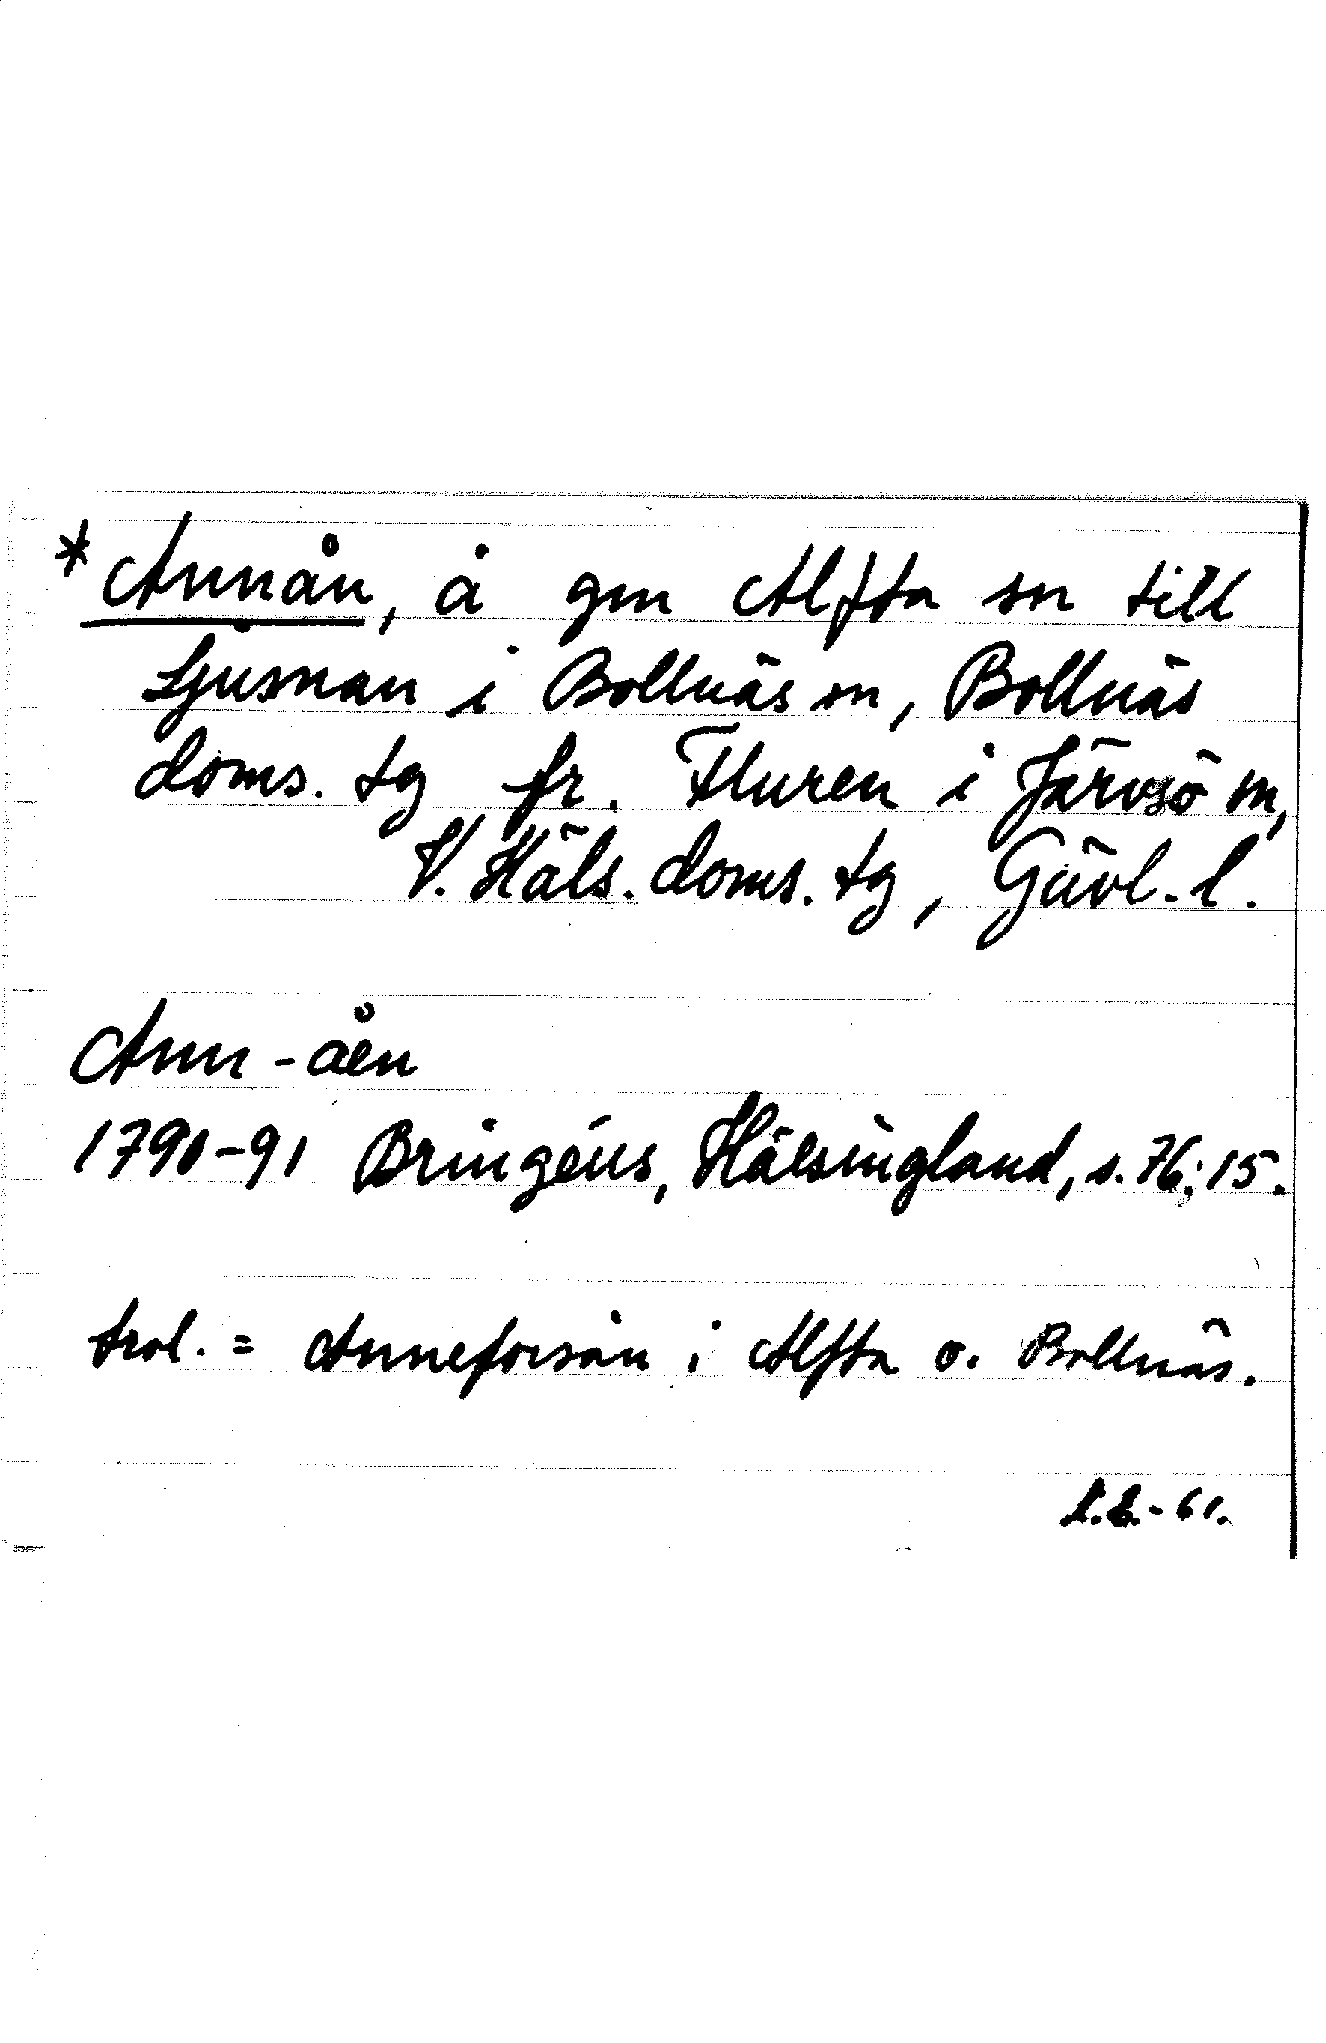 * Annån, å gm Alfta sn till
Ljusnan i Bollnäs sn, Bollnäs
doms. tg fr. Fluren i Järvsö sn,
V. Häls. doms. tg, Gävl. l.
Ann-åen
1790-91 Bringéus, Hälsingland, s. 76:15.
trol. = Anneforsån i Alfta o. Bollnäs.
-61.